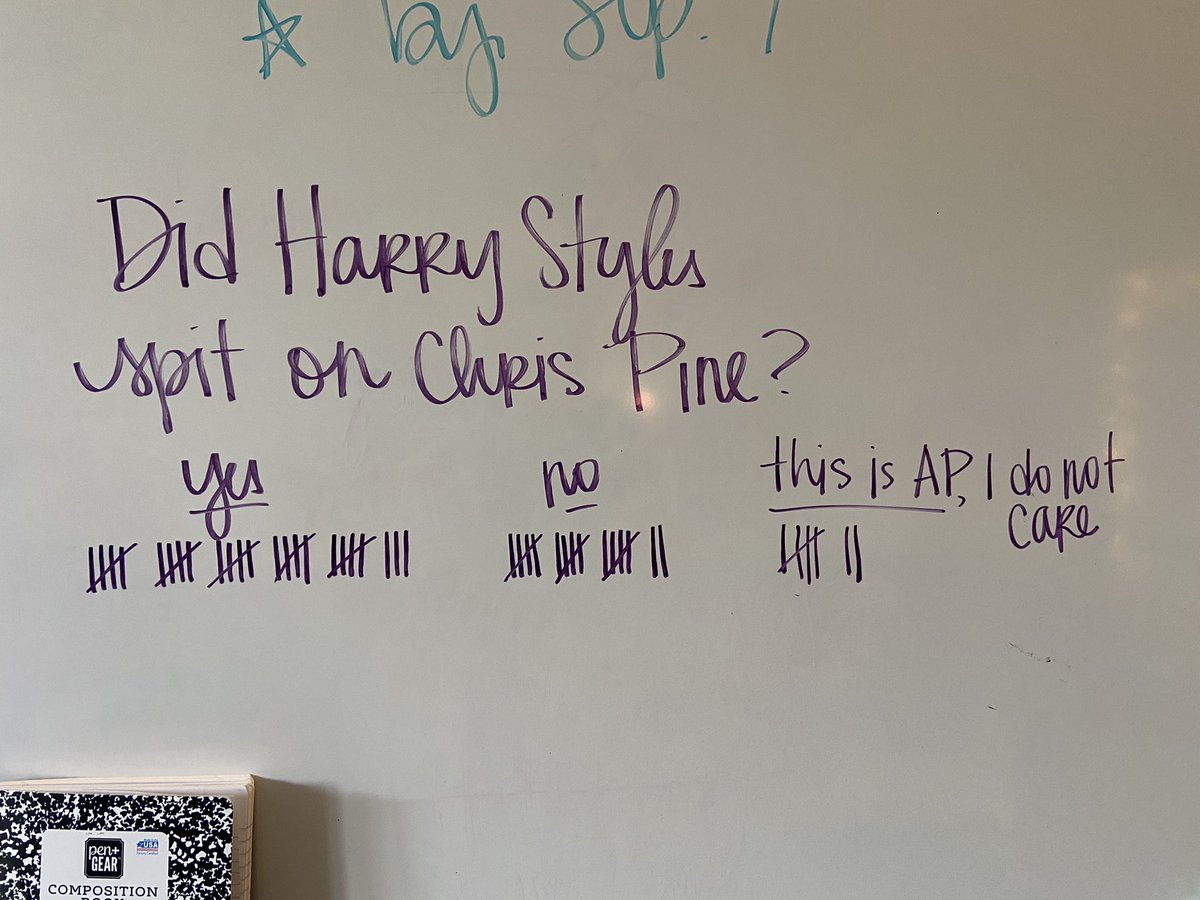 ☆ by Sep. 1
Did Harry Styles
spit on Chris Pine?
yes
no
this is AP, I do not
care
pen+
GEAR
USA
COMPOSITION